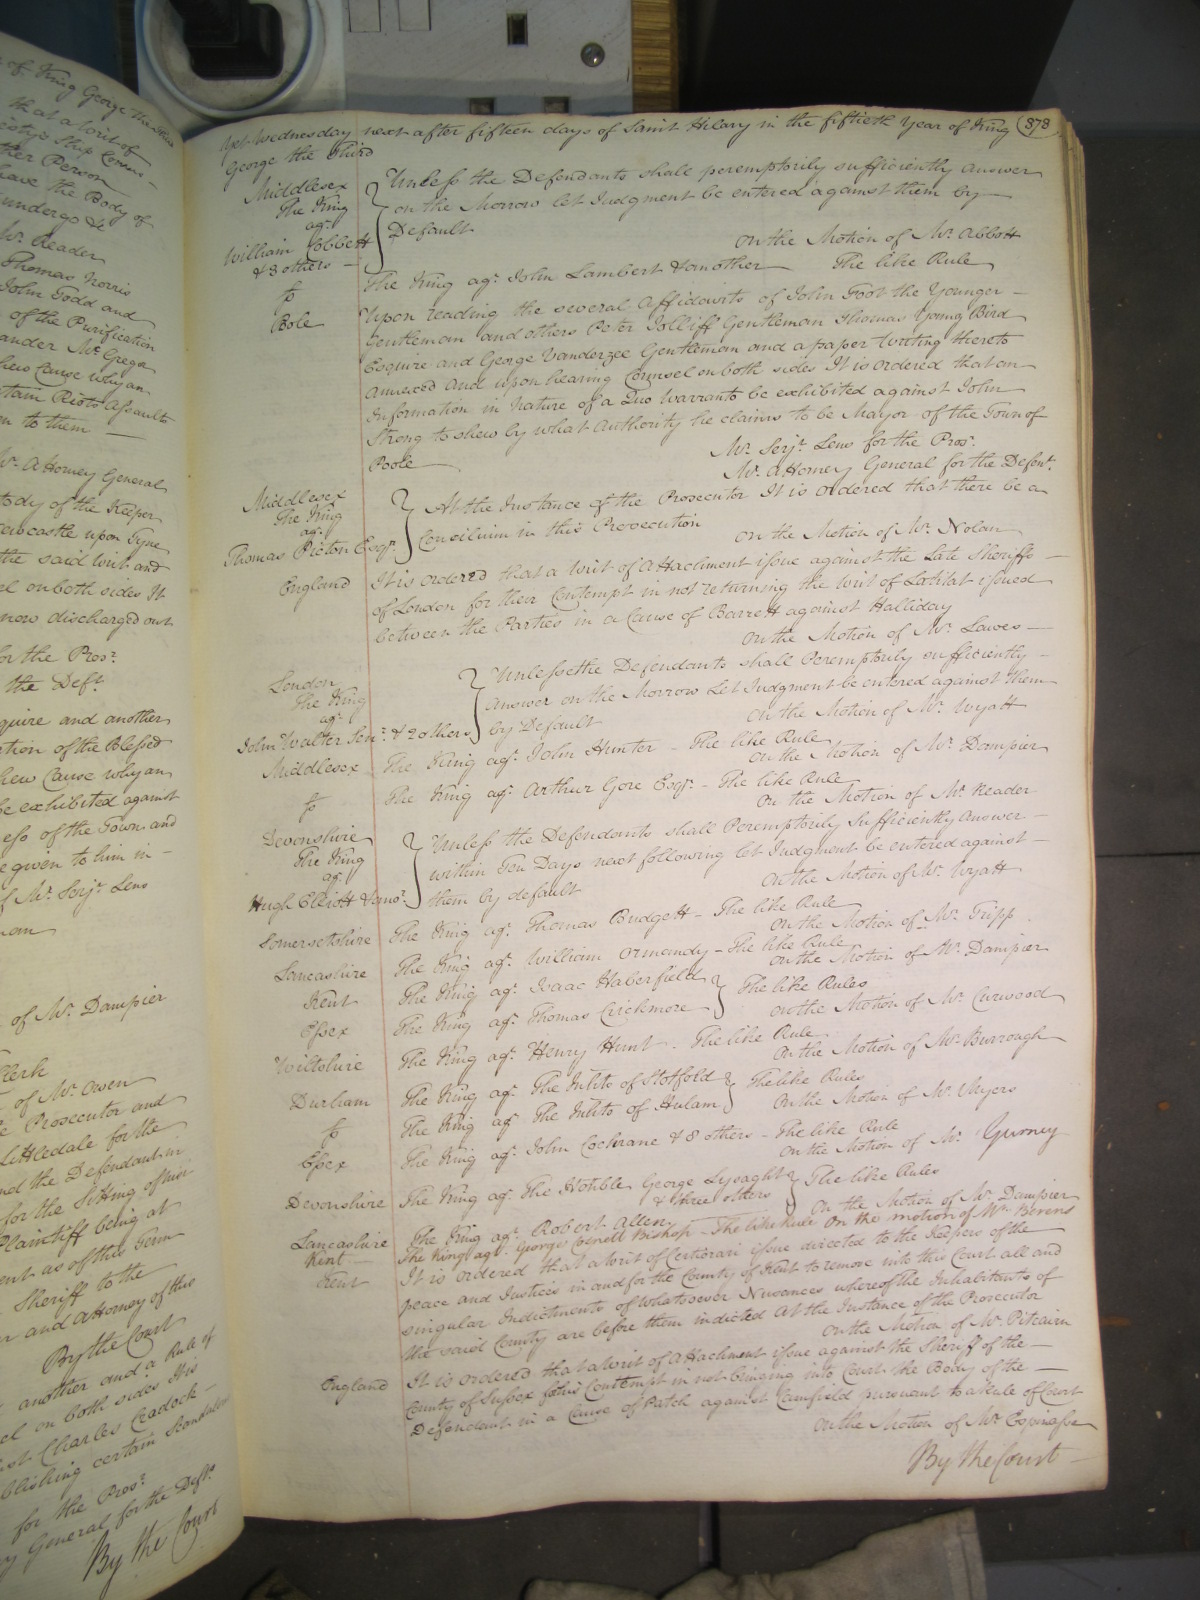 of King George the Third
that a Writ of
Majesty's Ship
other Person
have the Body of
undergo &c
Mr. Reader
Thomas Norris
John Todd and
of the Purification
ander McGregor
shew Cause why an
certain Riots Assaults
on to them
Mr. Attorney General
tody of the Keeper
Newcastle upon Tyne
the said Writ and
el on both sides It
now discharged out
for the Prosr.
the Deft.
quire and another
tion of the Blessed
shew Cause why an
be exhibited against
of the Town and
e given to him in
of Mr. Serjt. Lens
of Mr. Dampier
Clerk
of Mr. Owen
Prosecutor and
Littledale for the
and the Defendant in
for the Sitting of
Plaintiff being at
ent as of this Term
Sheriff to the
and Attorney of this
By the Court
another and a Rule of
el on both sides this
Charles Cradock
blishing certain Scandalous
for the Prosr.
General for the Deft.
By the Court
Yet Wednesday next after fifteen days of Saint Hilary in the fiftieth Year of King 878
George the Third
Middlesex
The King
agt.
William Cobbett
& 3 others
Unless the Defendants shall peremptorily sufficiently Answer
on the Morrow let Judgment be entered against them by
Default
On the Motion of Mr. Abbott
So The King agt. John Lambert & another The like Rule
Pole Upon reading the several Affidavits of John Foot the Younger
Gentleman and others Peter Jolliff Gentleman Thomas Young Bird
Esquire and George Vanderzee Gentleman and a paper Writing thereto
annexed And upon hearing Counsel on both sides It is ordered that an
Information in Nature of a Quo Warranto be exhibited against John
Strong to shew by what Authority he claims to be Mayor of the Town of
Poole
Mr. Serjt. Lens for the Prosr.
Mr. Attorney General for the Defent.
Middlesex
The King
agt.
Thomas Picton Esqr.
At the Instance of the Prosecutor It is ordered that there be a
Concilium in this Prosecution
On the Motion of Mr. Nolan
England It is ordered that a Writ of Attachment issue against the Late Sheriffs
of London for their Contempt in not returning the Writ of Latitat issued
between the Parties in a Cause of Barrett against Halliday
On the Motion of Mr. Lawes
London
The King
agt.
John Walter Senr. & 2 others
Unless the Defendants shall Peremptorily sufficiently
Answer on the Morrow Let Judgment be entered against them
by Default
On the Motion of Mr. Wyatt
Middlesex The King agt. John Hunter - The like Rule
On the Motion of Mr. Dampier
So The King agt. Arthur Gore Esqr. - The like Rule
On the Motion of Mr. Reader
Devonshire
The King
agt.
Hugh Elliott & anor.
Unless the Defendants shall Peremptorily Sufficiently Answer
within Ten Days next following let Judgment be entered against
them by default
On the Motion of Mr. Wyatt
Somersetshire The King agt. Thomas Budgett - The like Rule
On the Motion of Mr. Tripp
Lancashire The King agt. William Ormandy - The like Rule
On the Motion of Mr. Dampier
Kent The King agt. Isaac Haberfield
Essex The King agt. Thomas Crickmore The like Rules
On the Motion of Mr. Curwood
Wiltshire The King agt. Henry Hunt. The like Rule
On the Motion of Mr. Burrough
Durham The King agt. The Inhts of Stotfold
So The King agt The Inhts of Hulam The like Rules
On the Motion of Mr. Myers
Essex The King agt. John Cochrane & 8 others - The like Rule
On the Motion of Mr. Gurney
Devonshire The King agt. The Honble George Lysaght
& three others The like Rules
Lancashire The King agt. Robert Allen
On the Motion of Mr. Dampier
Kent The King agt. George Bishop - The like Rule On the motion of Mr. Berens
Kent It is ordered that a Writ of Certiorari issue directed to the Keepers of the
peace and Justices in and for the County of Kent to remove into this Court all and
singular Indictments of whatsoever Nuisances whereof the Inhabitants of
the said County are before them indicted At the Instance of the Prosecutor
On the Motion of Mr. Pitcairn
England It is ordered that a Writ of Attachment issue against the Sheriff of the
County of Sussex for his Contempt in not bringing into Court the Body of the
Defendant in a Cause of Patch against Camfield pursuant to a Rule of Court
On the Motion of Mr. Espinasse
By the Court